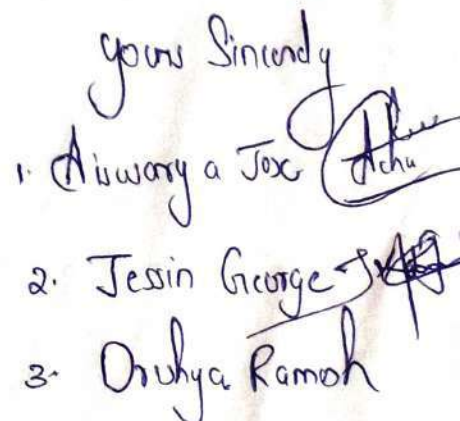 yours Sincerely
1. Aiswarya Jose Achu
2. Jessin George
3. Ramesh